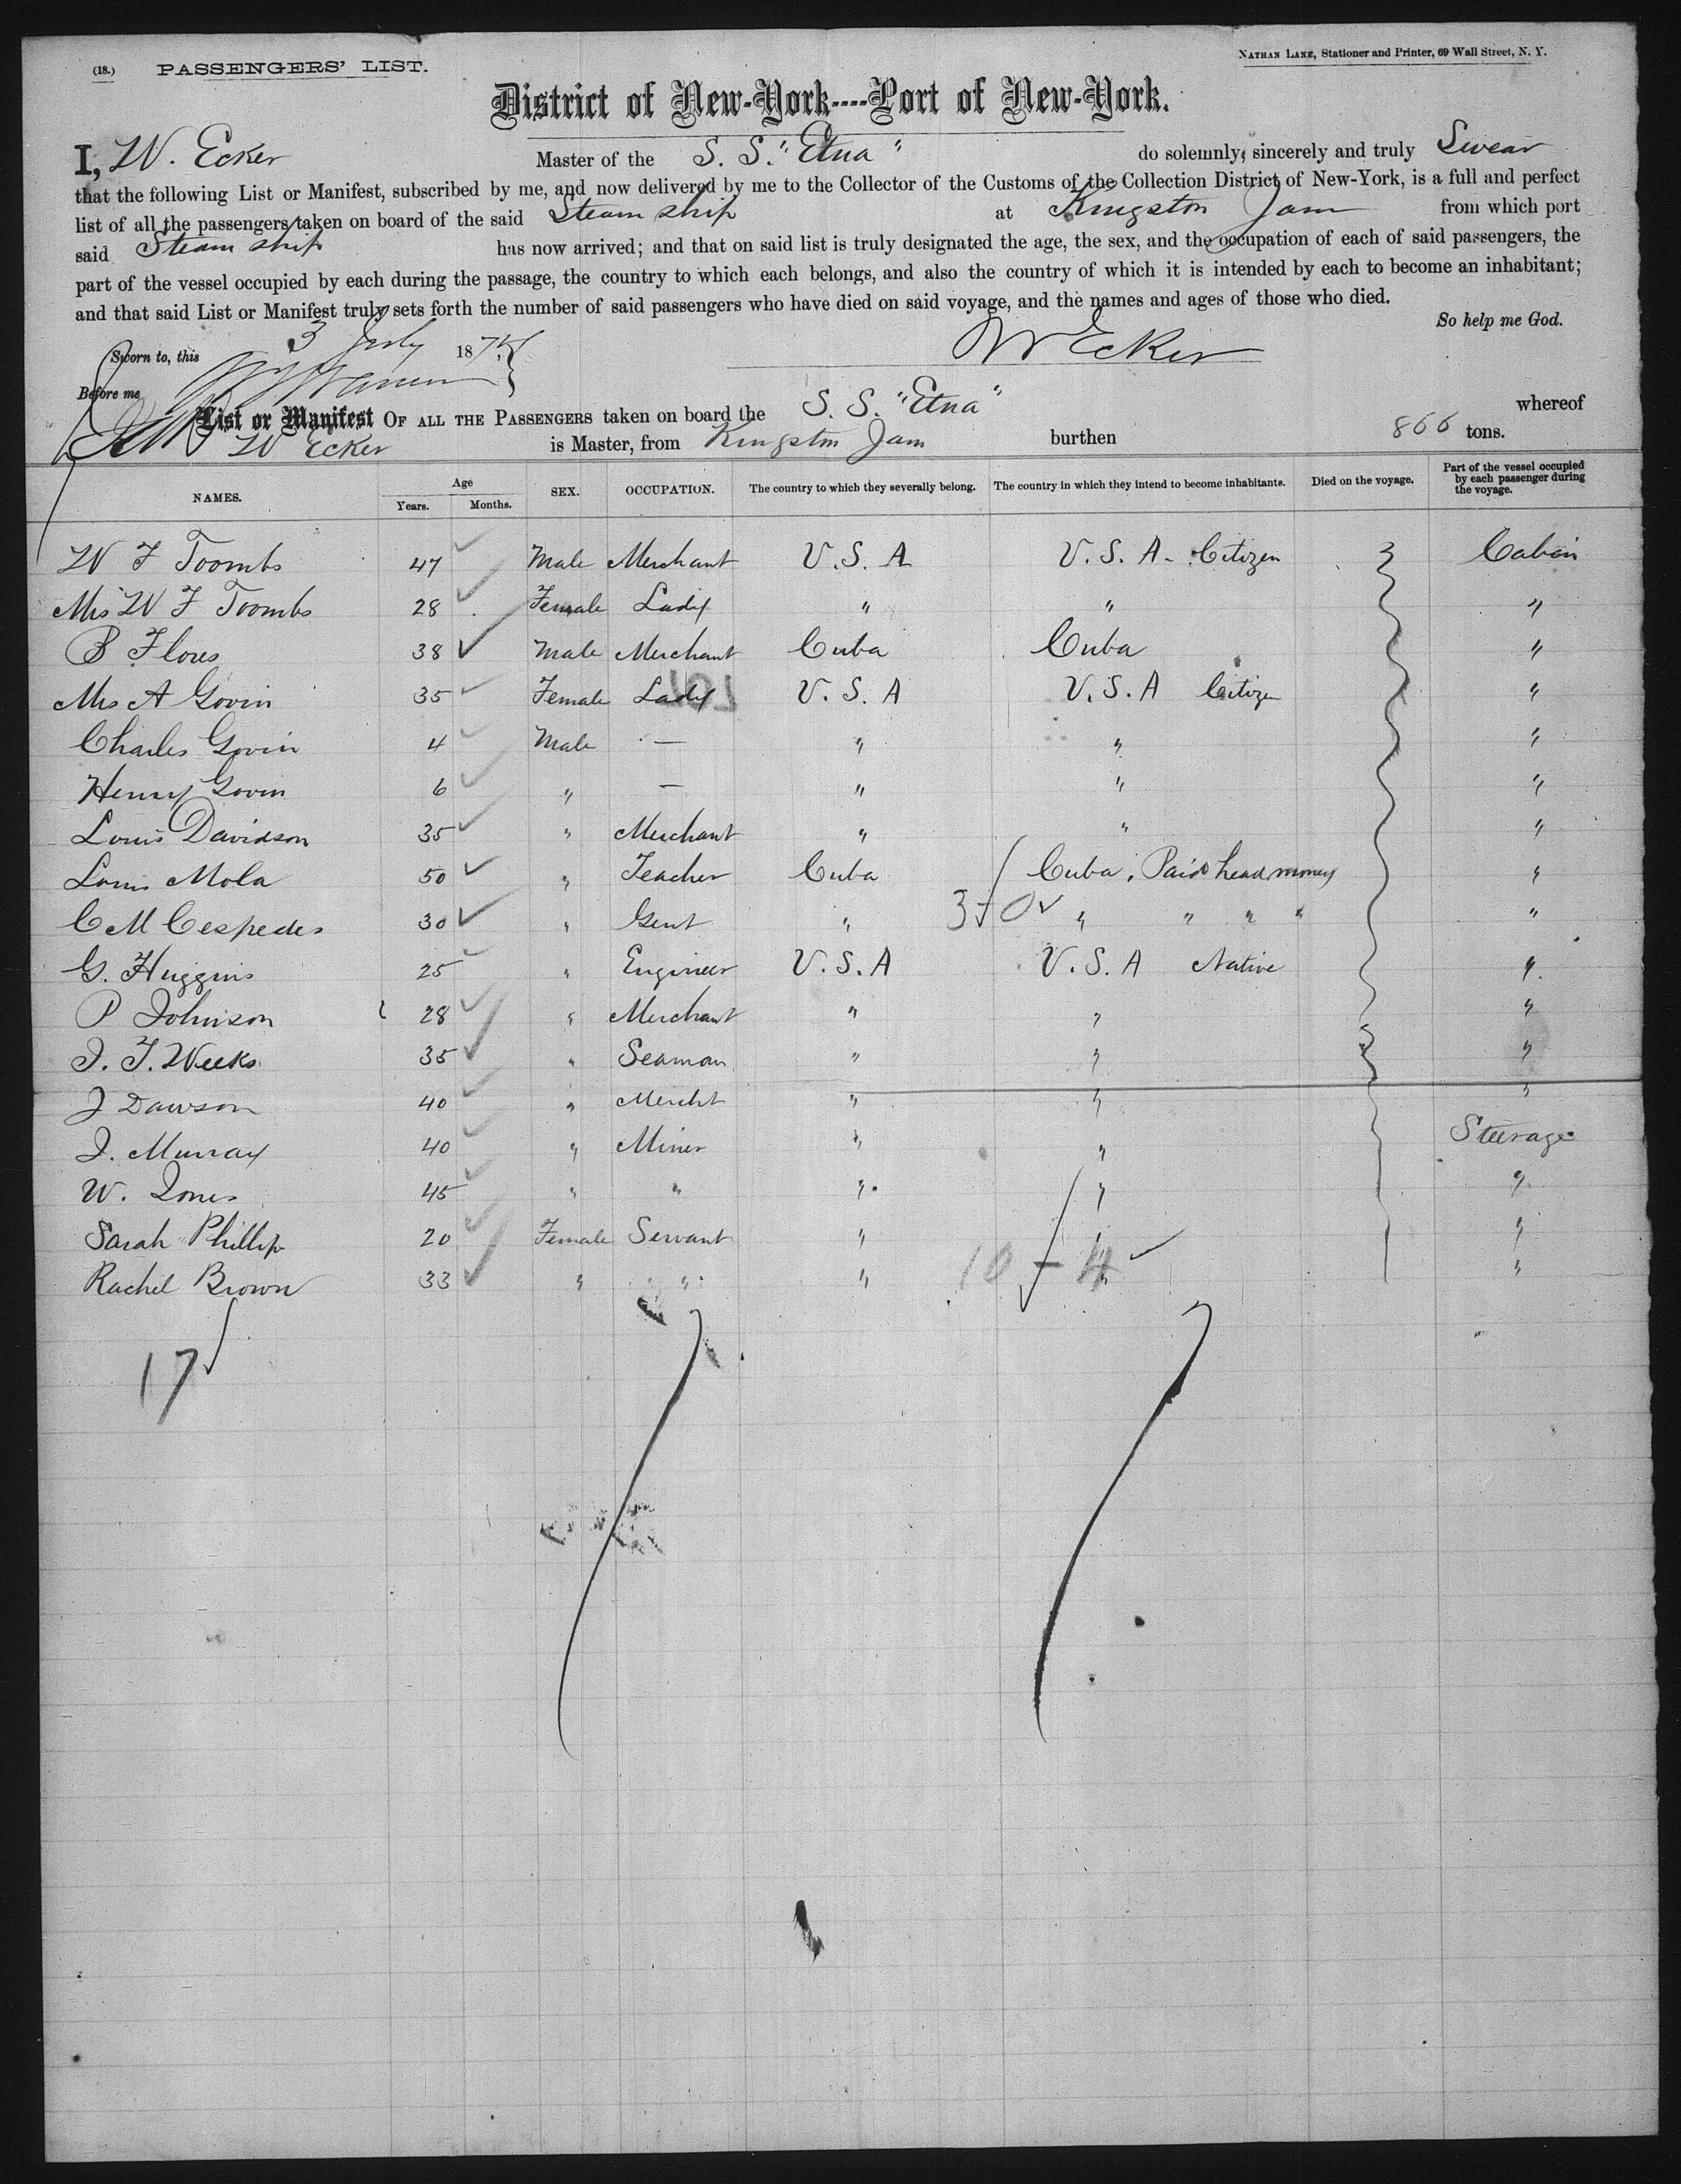 (18.) PASSENGERS' LIST.
NATHAN LANE, Stationer and Printer, 69 Wall Street, N. Y.
District of New-York----Port of New-York.
I, W. Ecker Master of the S. S. "Etna" do solemnly, sincerely and truly Swear
that the following List or Manifest, subscribed by me, and now delivered by me to the Collector of the Customs of the Collection District of New-York, is a full and perfect
list of all the passengers taken on board of the said Steam ship at Kingston Jam from which port
said Steam ship has now arrived; and that on said list is truly designated the age, the sex, and the occupation of each of said passengers, the
part of the vessel occupied by each during the passage, the country to which each belongs, and also the country of which it is intended by each to become an inhabitant;
and that said List or Manifest truly sets forth the number of said passengers who have died on said voyage, and the names and ages of those who died.
So help me God.
Sworn to, this 3 July 187
W Ecker
Before me
List or Manifest OF ALL THE PASSENGERS taken on board the S. S. "Etna" whereof
W Ecker is Master, from Kingston Jam burthen 866 tons.
NAMES. Age Years. Months. SEX. OCCUPATION. The country to which they severally belong. The country in which they intend to become inhabitants. Died on the voyage. Part of the vessel occupied by each passenger during the voyage.
W F Toombs 47 Male Merchant U. S. A U. S. A - Citizen Cabin
Mrs W F Toombs 28 Female Lady " " "
B Flores 38 Male Merchant Cuba Cuba "
Mrs A Govin 35 Female Lady U. S. A U. S. A Citizen "
Charles Govin 4 Male — " " "
Henry Govin 6 " — " " "
Louis Davidson 35 " Merchant " " "
Louis Mola 50 " Teacher Cuba Cuba, Paid head money "
C M Cespedes 30 " Gent " " " " " "
G. Huggins 25 " Engineer U. S. A U. S. A Native "
P Johnson 28 " Merchant " " "
J. T. Weeks 35 " Seaman " " "
J Dawson 40 " Mercht " " "
J. Murray 40 " Miner " " Steerage
W. Jones 45 " " " " "
Sarah Phillip 20 Female Servant " " "
Rachel Brown 33 " " " 10 - 4 " "
17